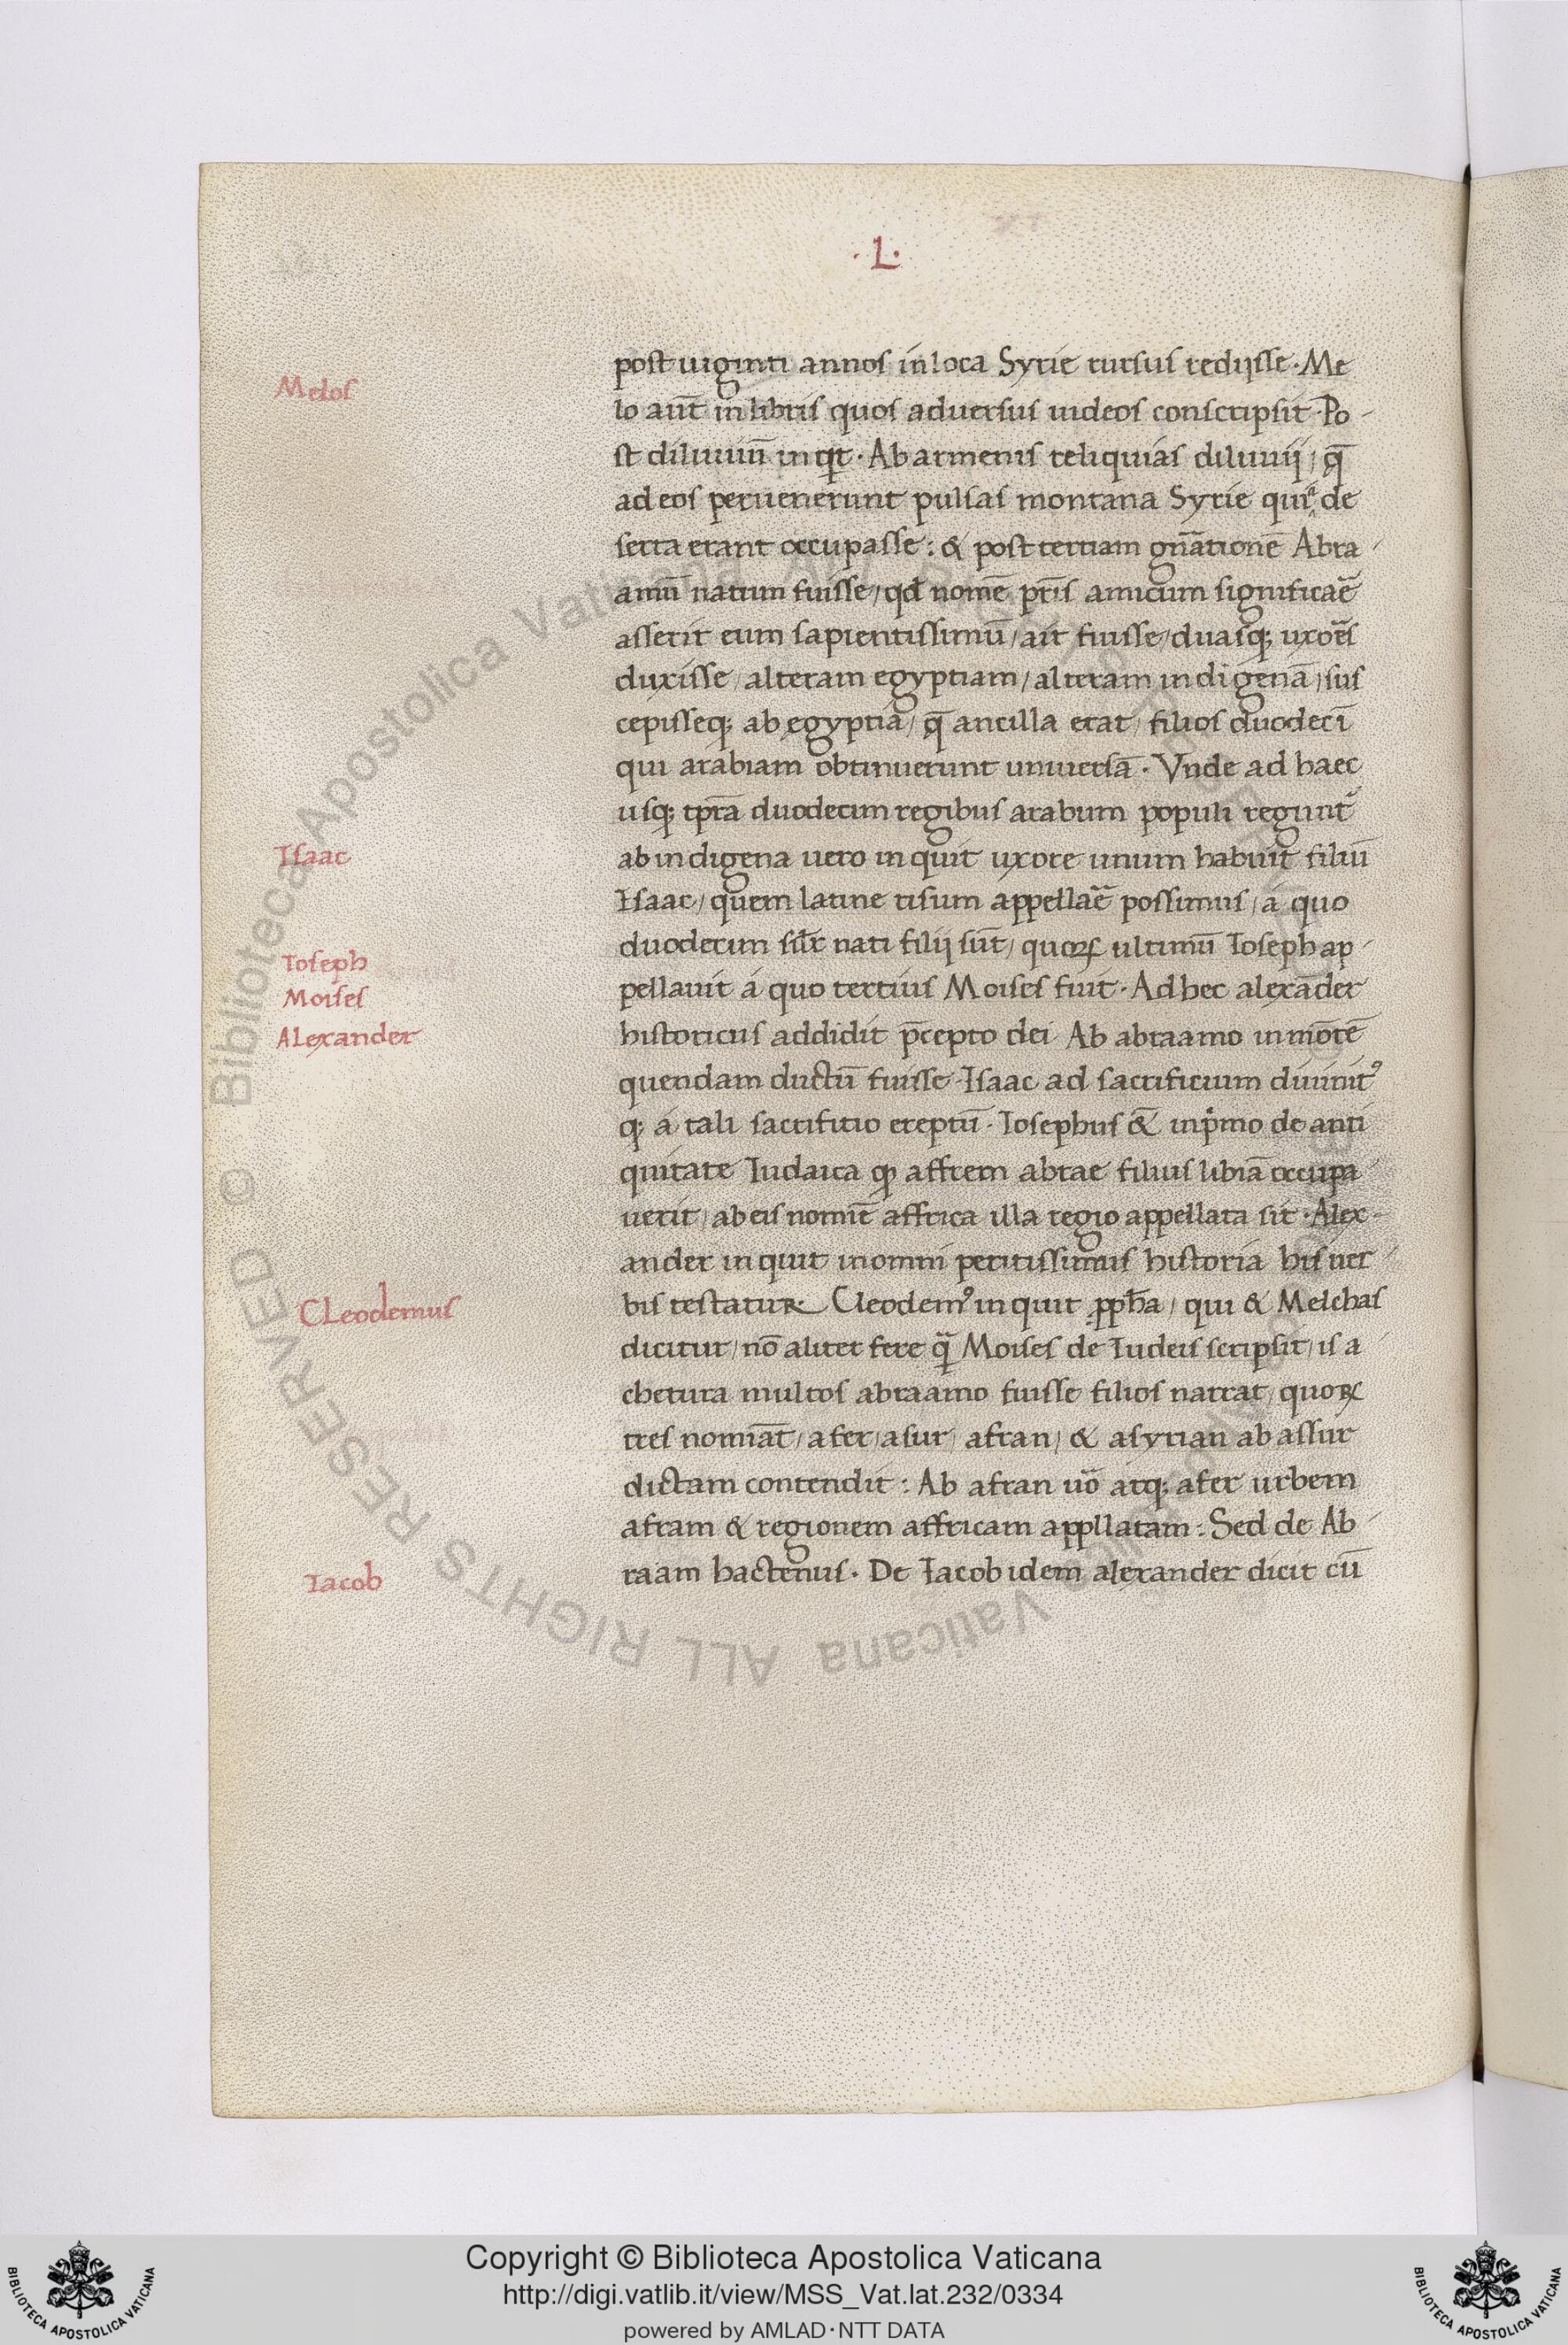 ·L·
post uiginti annos in loca Syrie rursus redijsse · Me
Melos
lo aut̄ in libris quos aduersus iudeos conscripsit · Po-
st diluuiū inqͥt · Ab armenis reliquias diluuij / q̄
ad eos peruenerunt pulsas montana Syrie quiᵃ de
serta erant occupasse : & post tertiam gn̄ationē Abra-
amū natum fuisse / qđ nomē pr̄is amicum significar̄e
asserit eum sapientissimū / ait fuisse / duasqꝫ uxor̄es
duxisse / alteram egyptiam / alteram indigenā / sus
cepisseqꝫ ab egyptia / q̄ ancilla erat / filios duodecī
qui arabiam obtinuerunt uniuersā · Vnde ad haec
usqꝫ tp̄ra duodecim regibus arabum populi regunt᷑
Isaac
ab indigena uero inquit uxore unum habuit filiū
Isaac / quem latine risum appellar̄e possimus / a quo
duodecim sil̄r nati filij sūt / quoꝝ ultimū Ioseph ap-
Ioseph
pellauit a quo tertius Moises fuit · Ad hec alexāder
Moises
historicus addidit p̄cepto dei Ab abraamo in mōtē
Alexander
quendam ductū fuisse · Isaac ad sacrificium diuinitꝰ
qꝫ a tali sacrifitio ereptū · Iosephus &̄ in pͥmo de anti
quitate Iudaica ꝙ affrem abrae filius libiā occupa-
uerit / ab eis nomīe affrica illa regio appellata sit · Alex-
ander inquit in omni peritissimus historia his uer
bis testatur · Cleodemꝰ inquit ꝓph̄a / qui & Melchas
Cleodemus
dicitur / nō aliter fere qᷓ Moises de Iudeis scripsit / is a
chetura multos abraamo fuisse filios narrat / quoꝝ
tres nomiāt / afer / asur / afran / & asyrian ab assur
dictam contendit : Ab afran uō atqꝫ afer urbem
afram & regionem affricam appllatam : Sed de Ab-
raam hactenus · De Iacob idem alexander dicit cū
Iacob
Copyright © Biblioteca Apostolica Vaticana
http://digi.vatlib.it/view/MSS_Vat.lat.232/0334
powered by AMLAD·NTT DATA
BIBLIOTECA APOSTOLICA VATICANA
BIBLIOTECA APOSTOLICA VATICANA
© Biblioteca Apostolica Vaticana ALL RIGHTS RESERVED